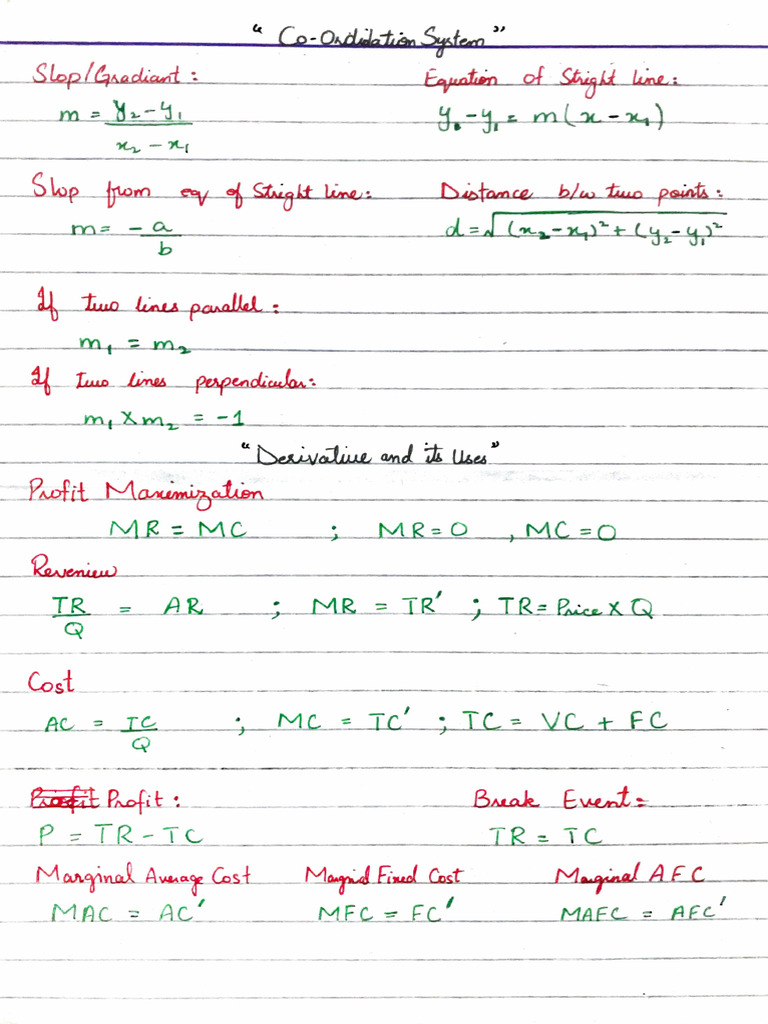 “Co-Ordidation System”
Slop/Gradiant : Equation of Stright line :
m = y₂-y₁ / x₂-x₁ y-y₁ = m(x-x₁)
Slop from eq of Stright line : Distance b/w two points :
m = -a/b d = √(x₂-x₁)²+(y₂-y₁)²
If two lines parallel :
m₁ = m₂
If two lines perpendicular :
m₁ × m₂ = -1
“Derivative and its Uses”
Profit Maximization
MR = MC ; MR = 0 , MC = 0
Reveniew
TR/Q = AR ; MR = TR′ ; TR = Price × Q
Cost
AC = TC/Q ; MC = TC′ ; TC = VC + FC
Profit Profit : Break Event =
P = TR - TC TR = TC
Marginal Average Cost Marginal Fixed Cost Marginal AFC
MAC = AC′ MFC = FC′ MAFC = AFC′